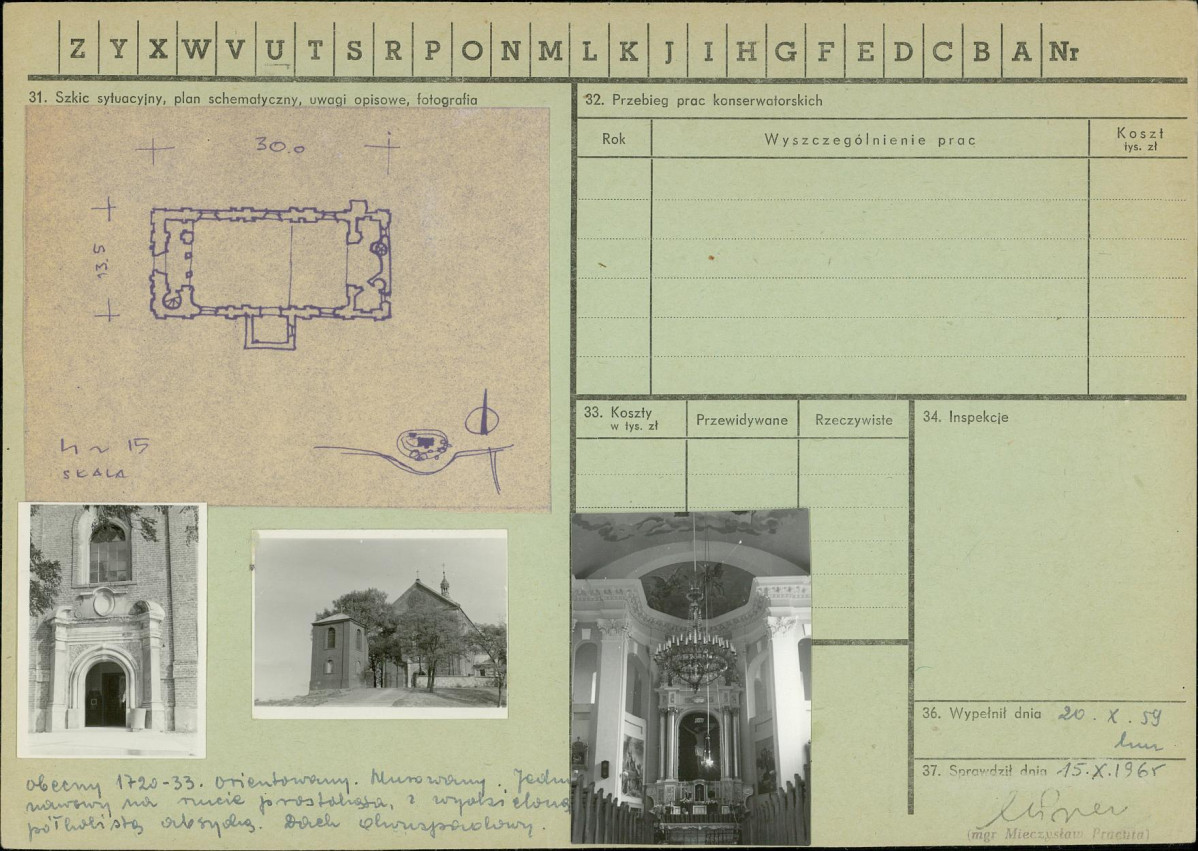 Z Y X W V U T S R P O N M L K J I H G F E D C B A Nr
31. Szkic sytuacyjny, plan schematyczny, uwagi opisowe, fotografia
30.0
13.5
15
SKALA
obecny 1720-33. Orientowany. Murowany. Jedno
nawowy na rzucie prostokąta, z wydzieloną
półkolistą absydą. Dach dwuspadowy.
32. Przebieg prac konserwatorskich
Rok Wyszczególnienie prac Koszt
tys. zł
33. Koszty
w tys. zł
Przewidywane Rzeczywiste
34. Inspekcje
36. Wypełnił dnia 20. X. 59
37. Sprawdził dnia 15.X.1965
(mgr Mieczysław Pracuta)